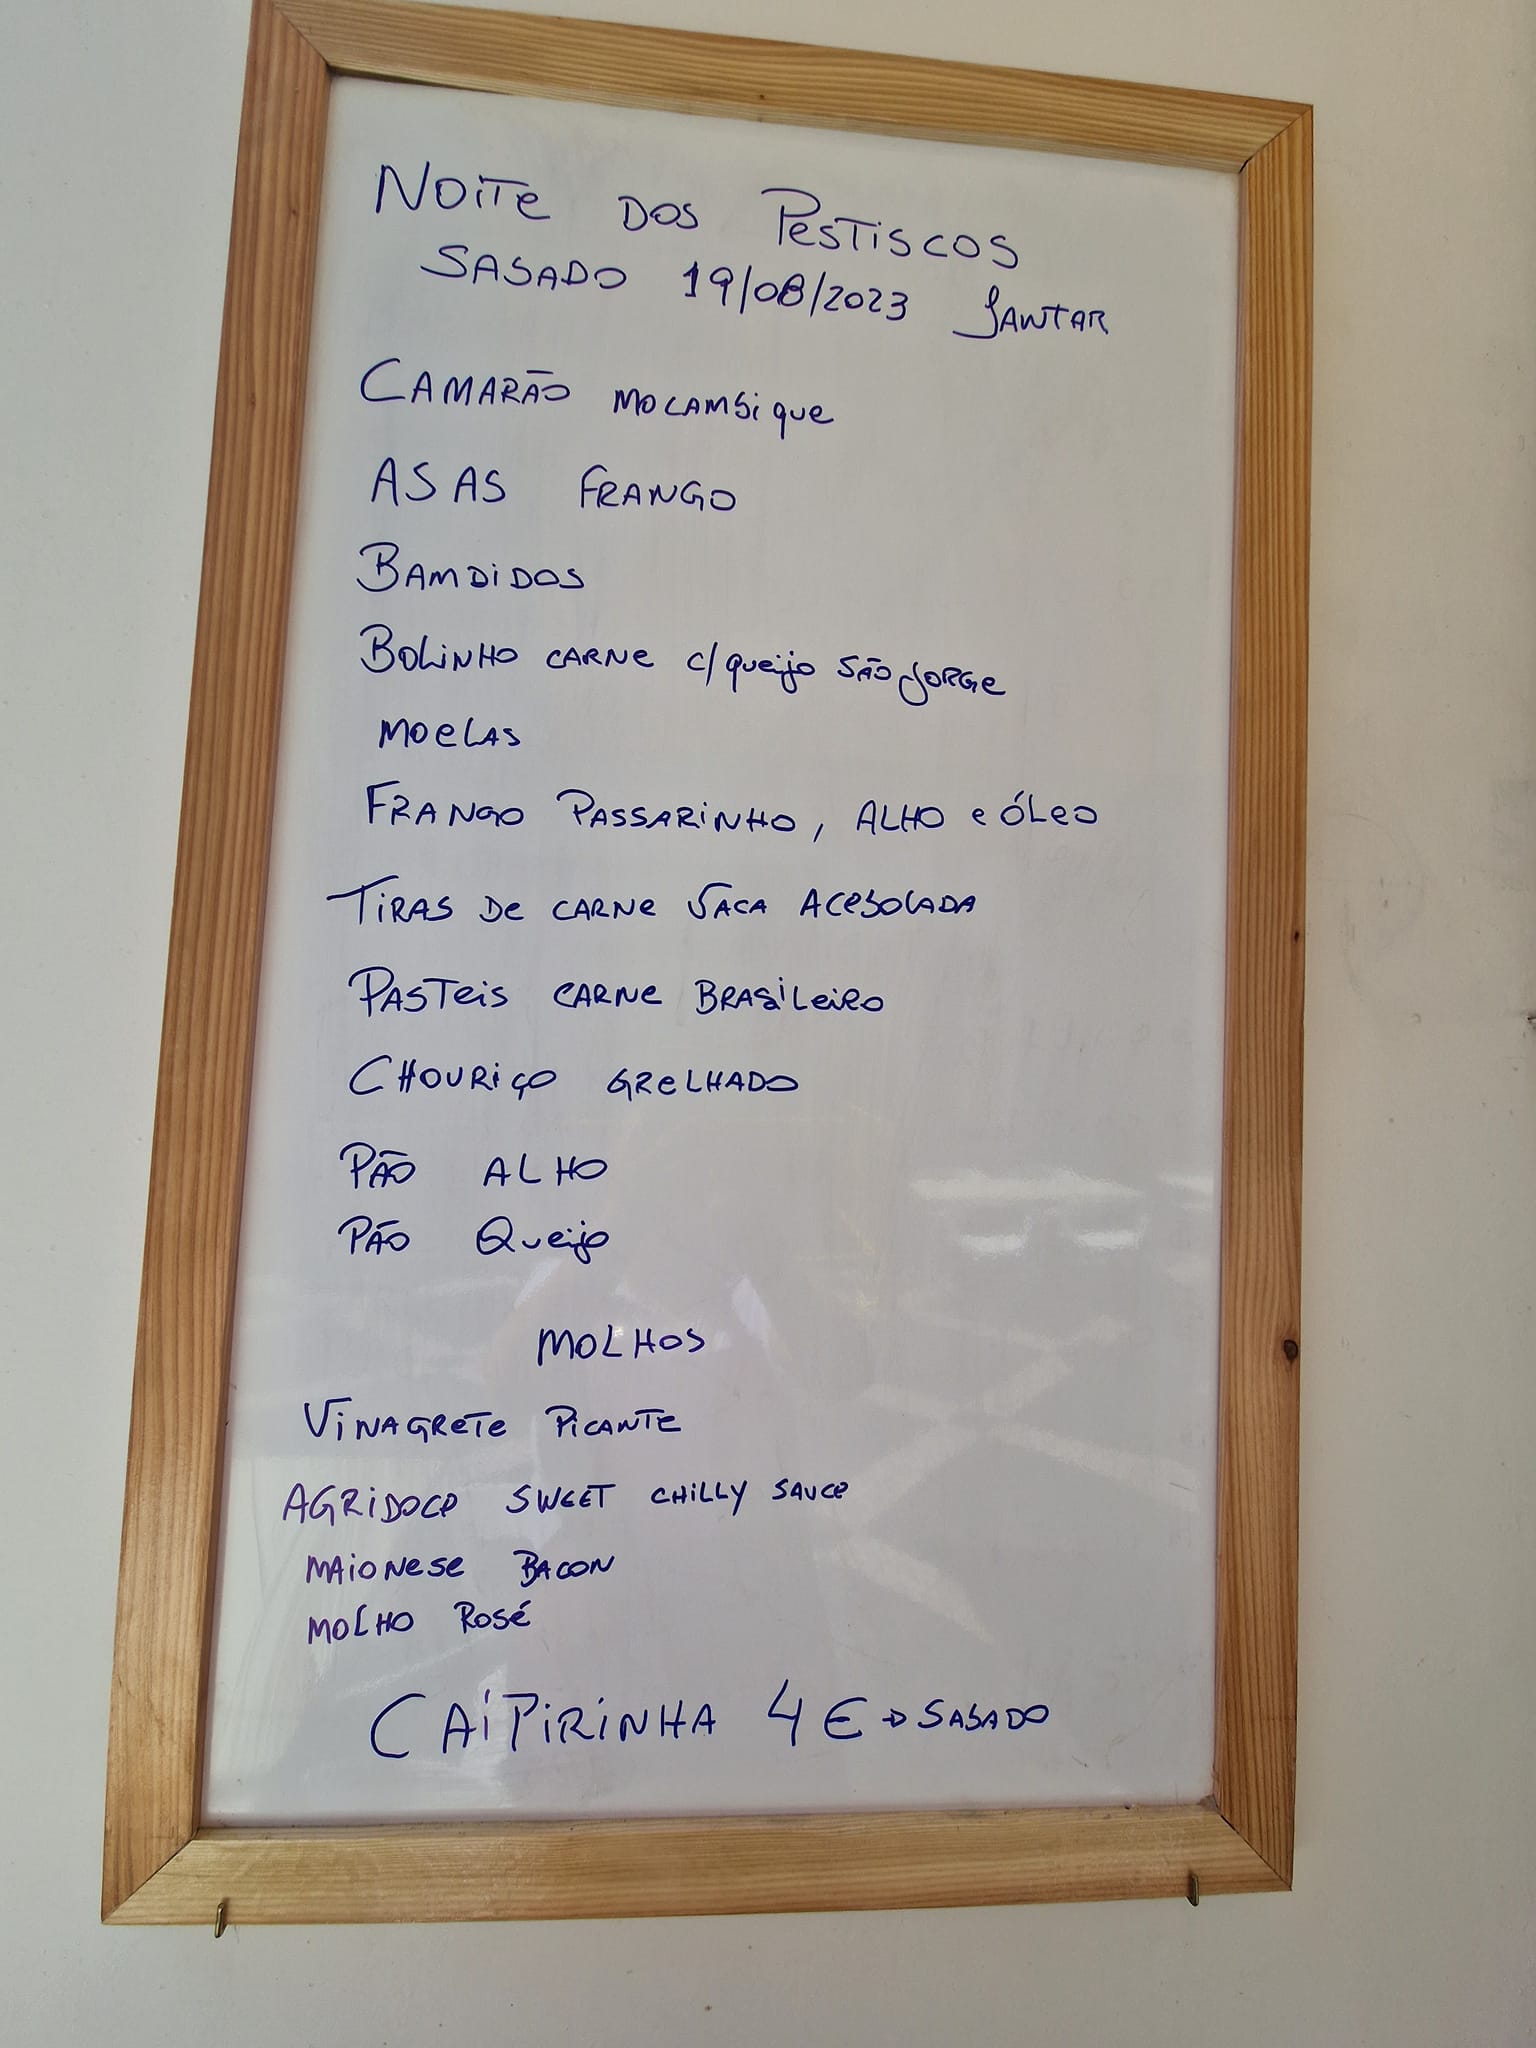 NOITE DOS PESTISCOS
SABADO 19/08/2023 JANTAR
CAMARÃO MOCAMBIQUE
ASAS FRANGO
BAMDIDOS
BOLINHO CARNE C/QUEIJO SÃO JORGE
MOELAS
FRANGO PASSARINHO, ALHO e ÓLEO
TIRAS DE CARNE VACA ACEBOLADA
PASTEIS CARNE BRASILEIRO
CHOURIÇO GRELHADO
PÃO ALHO
PÃO QUEIJO
MOLHOS
VINAGRETE PICANTE
AGRIDOCE SWEET CHILLY SAUCE
MAIONESE BACON
MOLHO ROSÉ
CAIPIRINHA 4€ → SABADO